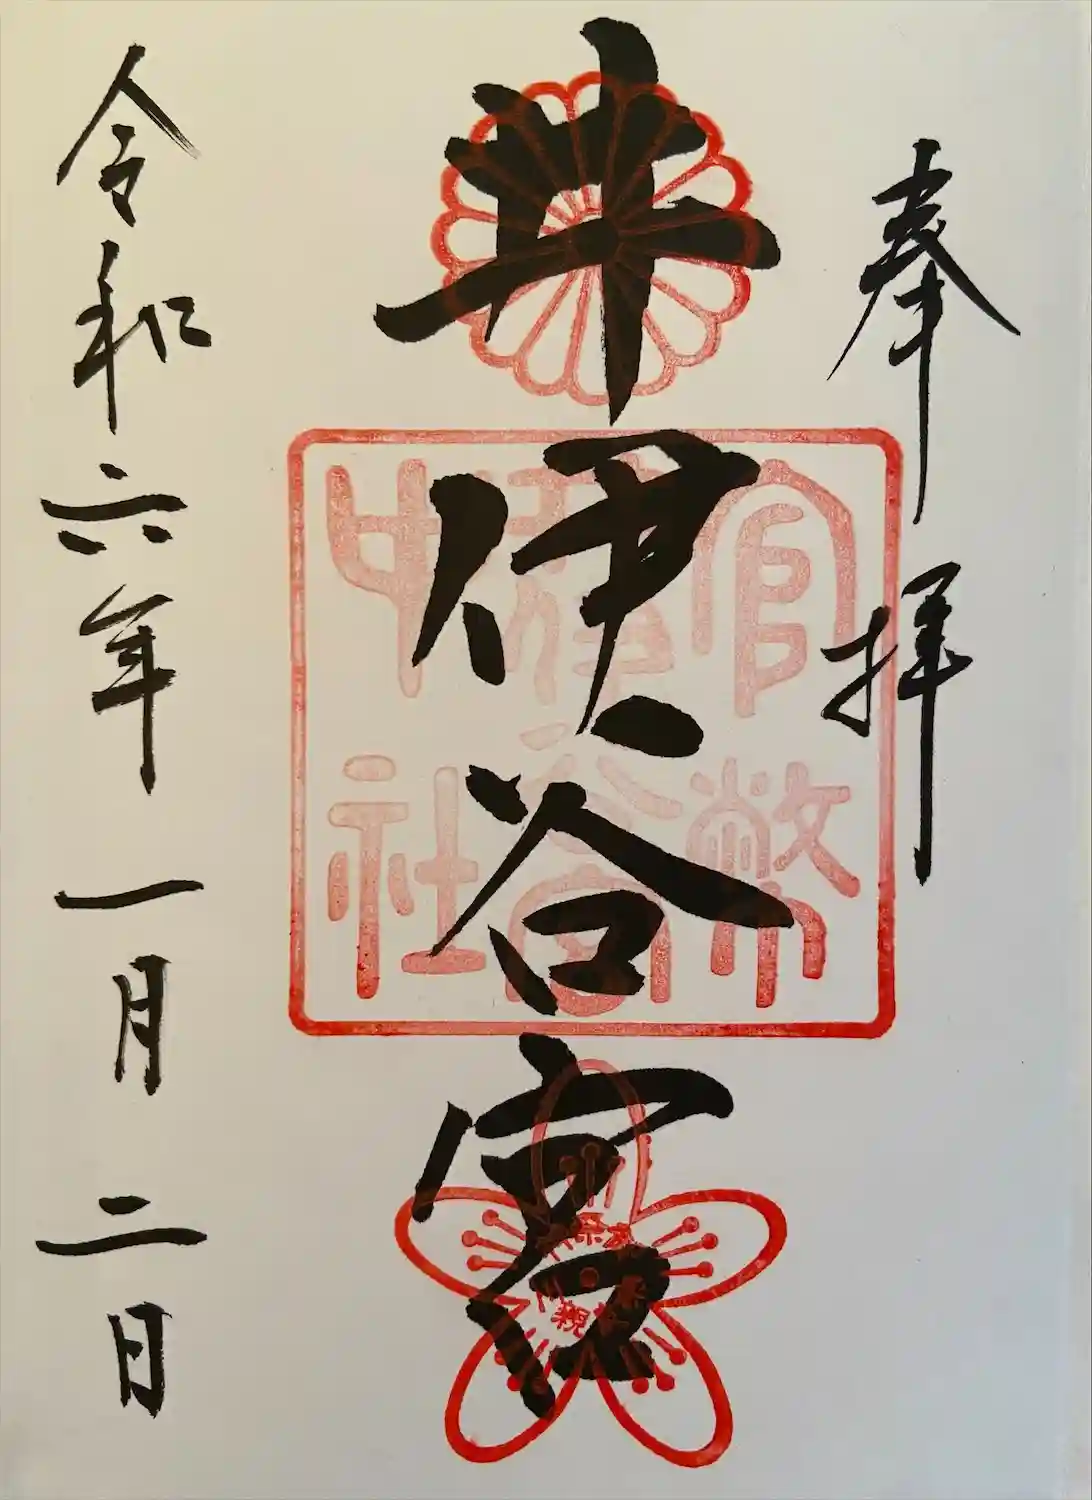 奉拝
井伊谷宮
官幣
中社
井伊谷宮
令和六年一月二日